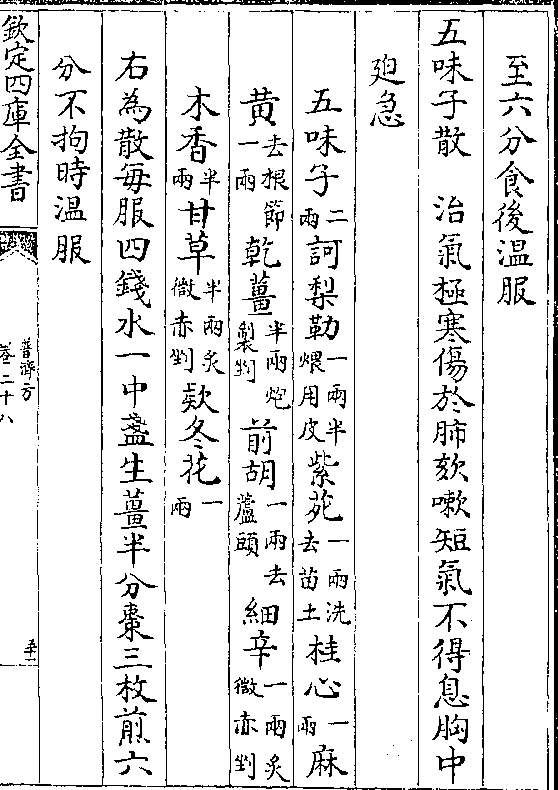 至六分食後温服
五味子散　治氣極寒傷於肺欬嗽短氣不得息胸中
廹急
五味子二兩訶梨勒一兩半煨用皮紫苑一兩洗去苗土桂心一兩麻
黄去根節一兩乾薑半兩炮製剉前胡一兩去蘆頭細辛一兩炙微赤剉
木香半兩甘草半兩炙微赤剉欵冬花一兩
右為散每服四錢水一中盞生薑半分棗三枚煎六
分不拘時温服
欽定四庫全書
普濟方
卷二十八